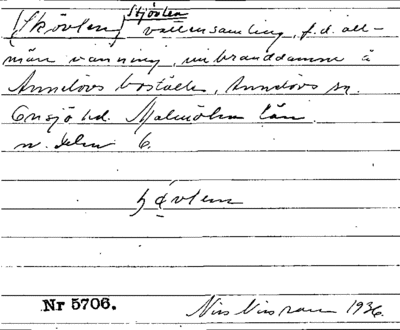 Stjövlen
(Skövlen) vattensamling, f.d. all-
män vanning, nu branddamm å
Annelövs boställe, Annelövs sn.
Onsjö hd. Malmöhus län.
6.
Nr 5706. Nils Nilsson 1936.